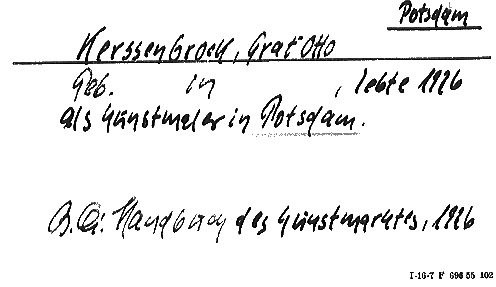 Potsdam
Kerssenbrock, Graf Otto
Geb. in , lebte 1926
als Kunstmaler in Potsdam.
B.Qu: Handbuch des Kunstmarktes, 1926
I-16-7 F 696 55 102